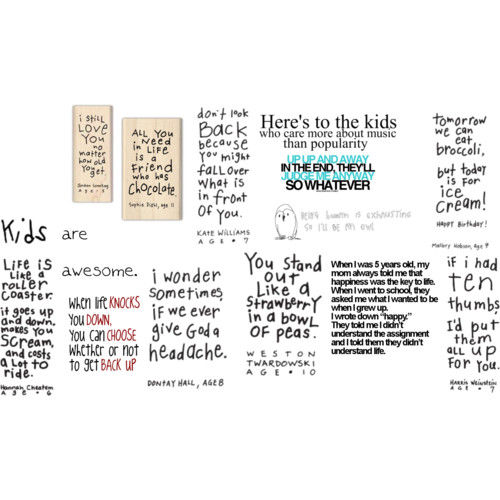 i still
LOVE
You
no
matter
how old
You get.
ALL YOU
Need
in LiFe
is a
Friend
who has
Chocolate.
Sophia Zidhi, age 11
don't look
BACK
because
You might
fall over
what is
in front
OF YOU.
KATE WILLIAMS
AGE • 7
Here's to the kids
who care more about music
than popularity
UP UP AND AWAY
IN THE END, THEY'LL
JUDGE ME ANYWAY
SO WHATEVER
Being human is exhausting
so I'll be my owl
tomorrow
we can
eat
broccoli,
but today
is FOR
ice
CReam!
HAPPY Birthday!
Mallory Hobson, Age 9
Kids are
awesome.
LiFe is
Like a
roller
Coaster.
it goes up
and down,
makes you
scream,
and costs
a Lot to
ride.
Hannah Cheatem
age • 6
when life KNOCKS
you DOWN,
you can CHOOSE
whether or not
to get BACK UP
i wonder
sometimes,
if we ever
give God a
headache.
DONTAY HALL, AGE 8
You stand
out
Like a
Strawberry
in a bowl
OF peas.
WESTON
TWARDOWSKI
AGE • 10
When I was 5 years old, my
mom always told me that
happiness was the key to life.
When I went to school, they
asked me what I wanted to be
when I grew up.
I wrote down "happy."
They told me I didn't
understand the assignment
and I told them they didn't
understand life.
if i had
ten
thumbs,
I'd put
them
all up
for You.
HARRIS WEINSTEIN
age • 7